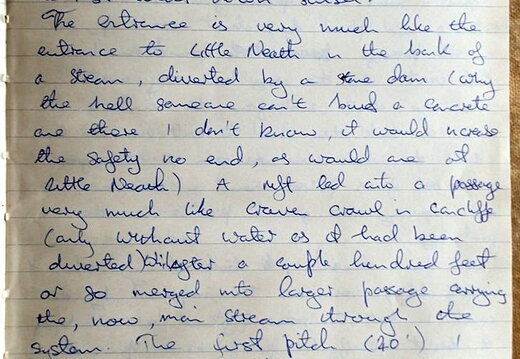 The entrance is very much like the
entrance to Little Neath in the bank of
a stream, diverted by a stone dam (why
the hell someone can't build a concrete
one there I don't know, it would increase
the safety no end, as would one at
Little Neath) A rift led into a passage
very much like Craven crawl in Lancliffe
(only without water as it had been
diverted) after a couple hundred feet
or so merged into larger passage carrying
the, now, main stream through the
system. The first pitch (20')